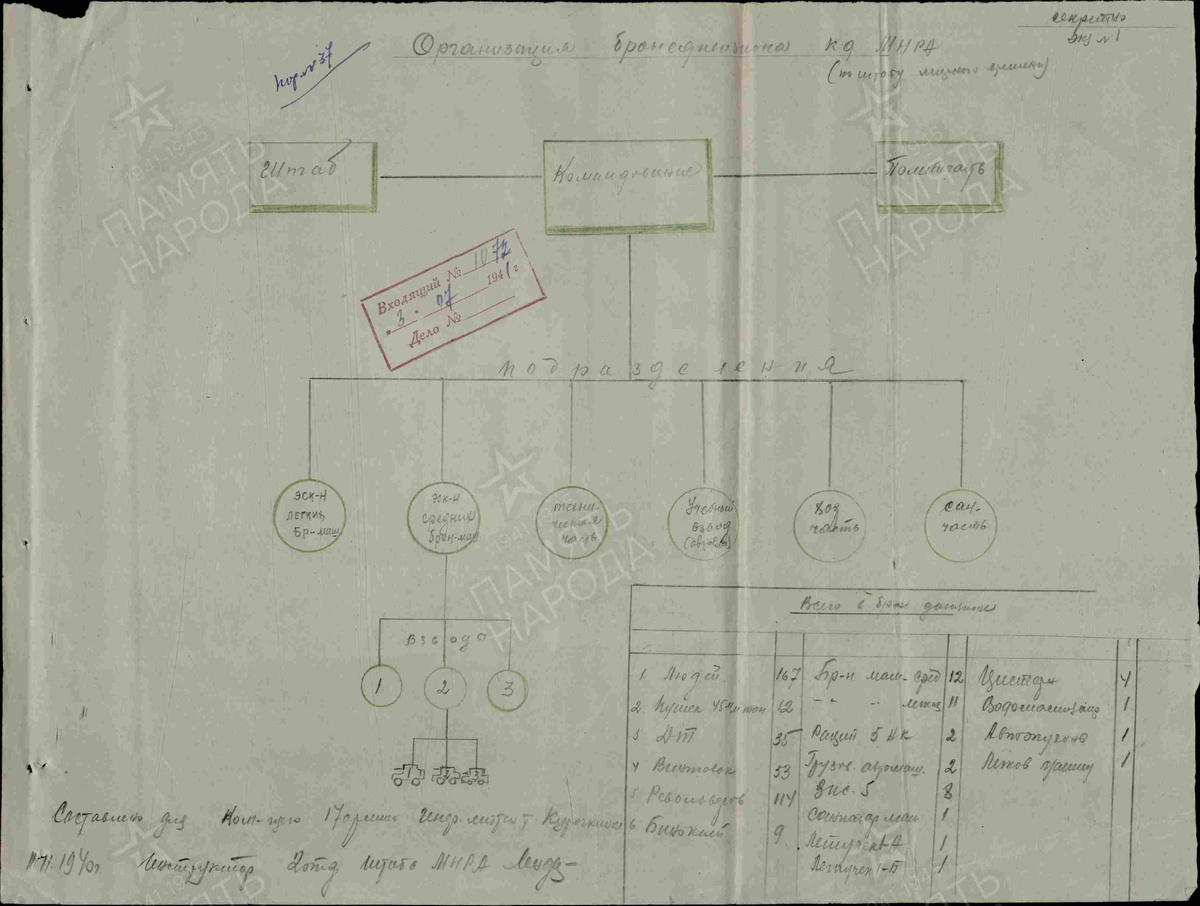 секретно
экз №1
Организация бронедивизиона кд МНРА
(по штату мирного времени)
Штаб
Командование
Политчасть
Входящий № 1072
"3" 07 1941 г.
Дело №
подразделения
эск-н
легких
бр-маш
эск-н
средних
брон-маш
техни-
ческая
часть
Учебный
взвод
хоз
часть
сан-
часть
взвода
1 2 3
Всего в дивизионе
1 Людей 167 Бр-н маш. сред 12 Цистерн 4
2 Пушек 45 12 -"- " легких 11 1
3 ДТ 35 Раций 5 АК 2 1
4 Винтовок 53 Грузов. автомаш. 2 Легков машин 1
5 Револьверов 114 Зис-5 8
6 Биноклей 9 маш 1
Летучек А 1
Летучек Б 1
Составлено для Ком-щего 17 армии лейтенант Курочкина
1940г. Инструктор 2 отд. штаба МНРА
1941-1945
ПАМЯТЬ
НАРОДА